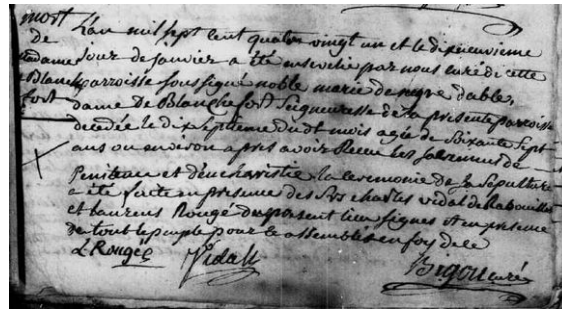 mort
de
madame
Blanch
fort
L'an mil sept cent quatre vingt un et le dixneuvieme
jour de janvier a été ensevelie par nous curé de cette
parroisse soussigné noble marie de negre dable,
dame De Blanchefort Seigneuresse de la presente parroisse
decedée le dix Septieme dudt mois agée de Soixante Sept
ans ou environ apres avoir Receu les sacremens de
Penitean et d'eucharistie la ceremonie de la Sepulture
a été faite en presence des Srs charles vidal de Rabouillet
et Laurens Rougé du present lieu signes et en presence
de tout le peuple pour ce assemblés en foy de ce
L Rougé Vidall Bigou curé